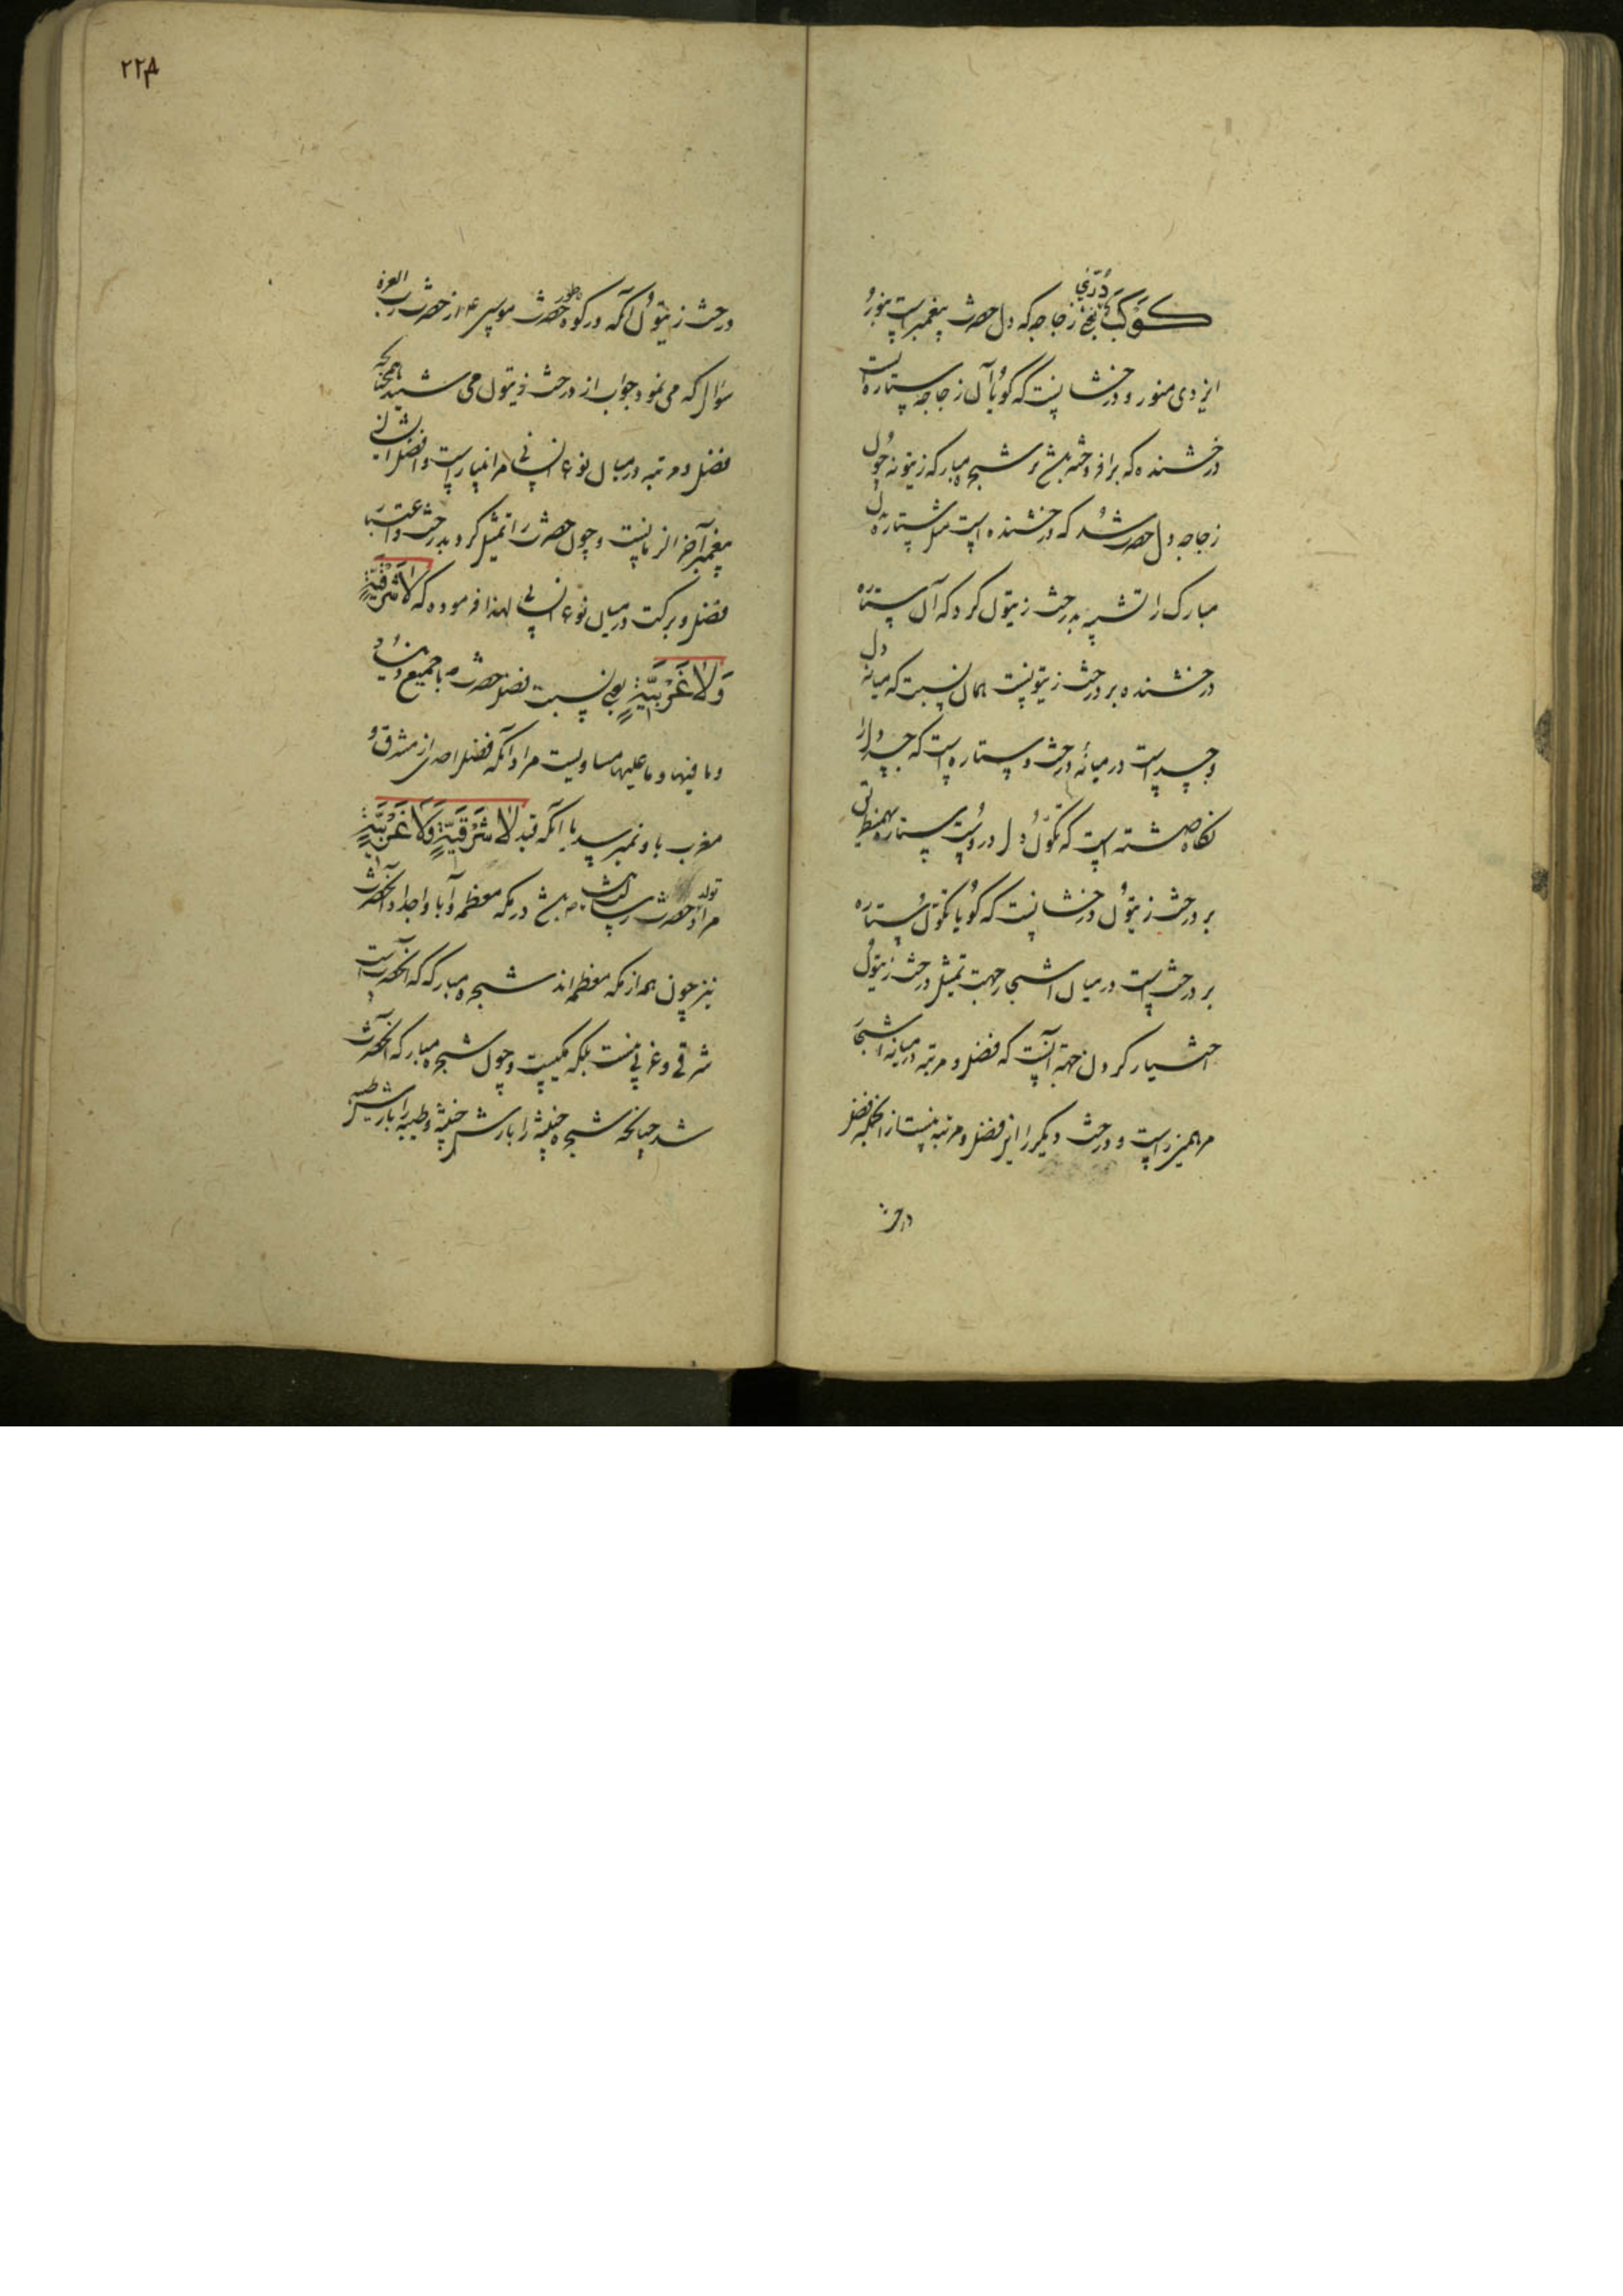 كَوْكَبٌ دُرِّيٌّ یعنی زجاجه که دل حضرت پیغمبر است بنور
ایزدی منور و درخشانست که گویا آن زجاجه ستاره است
درخشنده که برافروخته باشد بر شجره مبارکه زیتونه چون
زجاجه دل حضرت شد که درخشنده است مثل ستاره دل
مبارک را تشبیه بدرخت زیتون کرد که آن ستاره
درخشنده بر درخت زیتونست همان نسبت که میانه دل
و جسد است در میانهٔ درخت و ستاره است که جسد دل را
نگاه داشته است که تکون دل در وست ستاره
بر درخت زیتون درخشانست که گویا تکون ستاره
بر درخت است در میان اشجار جهت تمثیل درخت زیتون
اختیار کردن جهة آنست که فضل و مرتبه در میانه اشجار
مر همین راست و درخت دیگر را این فضل و مرتبه نیست از آنجمله فضل
درخت
٢٢٨
درخت زیتون آنکه در کوه طور حضرت موسی ع از حضرت رب العزة
سؤال که می نمود جواب از درخت زیتون می شنید همچنانکه
فضل و مرتبه در میان نوع انسانی مر انبیا راست و افضل ایشان
پیغمبر آخر الزمانست و چون حضرت را تمثیل کرد بدرخت و اعتبار
فضل و برکت در میان نوع انسانی لهذا فرموده که لَا شَرْقِيَّةٍ
وَلَا غَرْبِيَّةٍ یعنی نسبت فضل حضرت ص با جمیع دنیا
و ما فیها و ما علیها مساویست مراد آنکه فضل احدی از مشرق و
مغرب باو نمیرسد یا آنکه قید لَا شَرْقِيَّةٍ وَلَا غَرْبِيَّةٍ
مراد تولد حضرت رسالت ص باشد در مکه معظمه و آبا و اجداد آنحضرت
نیز چون همه از مکه معظمه اند شجره مبارکه که آنحضرت است
شرقی و غربی نیست بلکه مکیست و چون شجره مبارکه آنحضرت
شد چنانچه شجره خبیثه را بارش خبیثه و طیبه را بارش طیبه